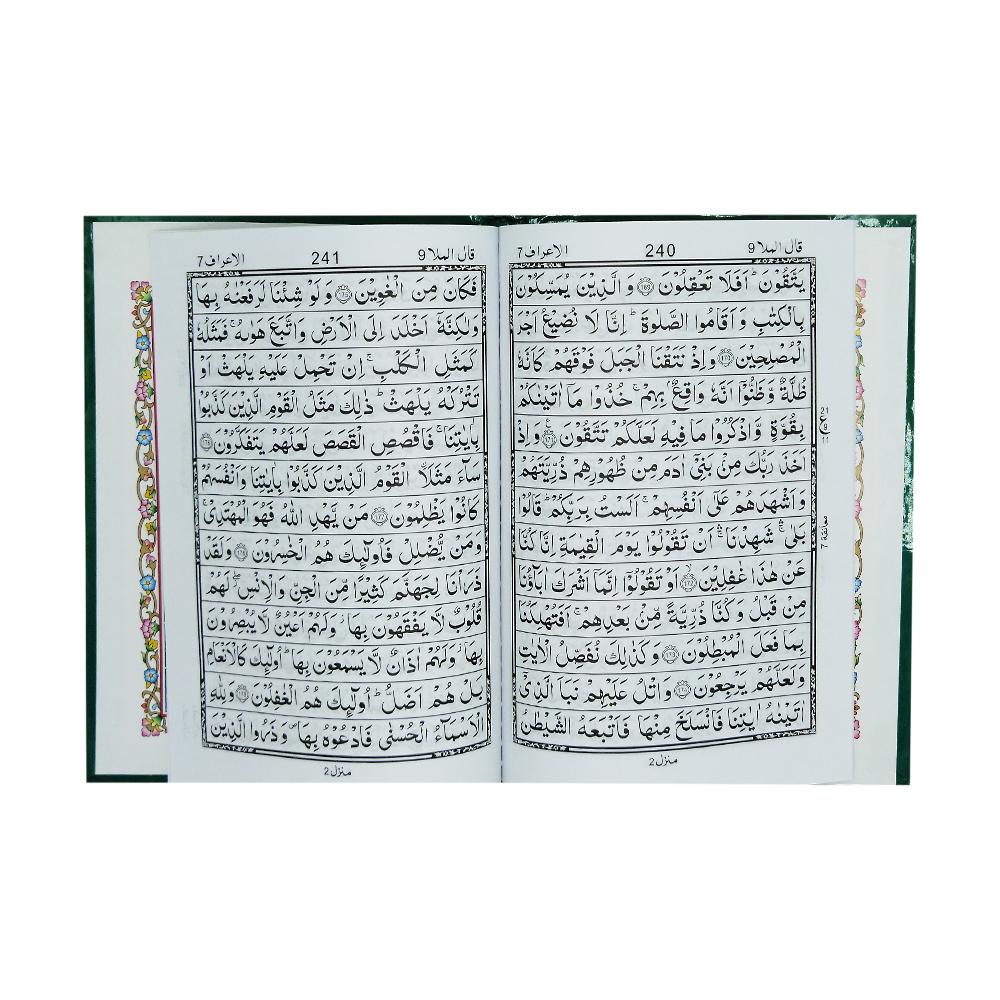 قال الملا 9 240 الاعراف 7
يَتَّقُوْنَ ؕ اَفَلَا تَعْقِلُوْنَ ﴿169﴾ وَ الَّذِيْنَ يُمَسِّكُوْنَ
بِالْكِتٰبِ وَ اَقَامُوا الصَّلٰوةَ ؕ اِنَّا لَا نُضِيْعُ اَجْرَ
الْمُصْلِحِيْنَ ﴿170﴾ وَ اِذْ نَتَقْنَا الْجَبَلَ فَوْقَهُمْ كَاَنَّهٗ
ظُلَّةٌ وَّ ظَنُّوْۤا اَنَّهٗ وَاقِعٌۢ بِهِمْ ۚ خُذُوْا مَاۤ اٰتَيْنٰكُمْ
بِقُوَّةٍ وَّ اذْكُرُوْا مَا فِيْهِ لَعَلَّكُمْ تَتَّقُوْنَ ﴿171﴾ وَ اِذْ
اَخَذَ رَبُّكَ مِنْۢ بَنِيْۤ اٰدَمَ مِنْ ظُهُوْرِهِمْ ذُرِّيَّتَهُمْ
وَ اَشْهَدَهُمْ عَلٰۤى اَنْفُسِهِمْ ۚ اَلَسْتُ بِرَبِّكُمْ ؕ قَالُوْا
بَلٰى ۛۚ شَهِدْنَا ۛۚ اَنْ تَقُوْلُوْا يَوْمَ الْقِيٰمَةِ اِنَّا كُنَّا
عَنْ هٰذَا غٰفِلِيْنَ ﴿172﴾ اَوْ تَقُوْلُوْۤا اِنَّمَاۤ اَشْرَكَ اٰبَآؤُنَا
مِنْ قَبْلُ وَ كُنَّا ذُرِّيَّةً مِّنْۢ بَعْدِهِمْ ۚ اَفَتُهْلِكُنَا
بِمَا فَعَلَ الْمُبْطِلُوْنَ ﴿173﴾ وَ كَذٰلِكَ نُفَصِّلُ الْاٰيٰتِ
وَ لَعَلَّهُمْ يَرْجِعُوْنَ ﴿174﴾ وَ اتْلُ عَلَيْهِمْ نَبَاَ الَّذِيْۤ
اٰتَيْنٰهُ اٰيٰتِنَا فَانْسَلَخَ مِنْهَا فَاَتْبَعَهُ الشَّيْطٰنُ
منزل 2
معانقة 7
قال الملا 9 241 الاعراف 7
فَكَانَ مِنَ الْغٰوِيْنَ ﴿175﴾ وَ لَوْ شِئْنَا لَرَفَعْنٰهُ بِهَا
وَ لٰكِنَّهٗۤ اَخْلَدَ اِلَى الْاَرْضِ وَ اتَّبَعَ هَوٰىهُ ۚ فَمَثَلُهٗ
كَمَثَلِ الْكَلْبِ ۚ اِنْ تَحْمِلْ عَلَيْهِ يَلْهَثْ اَوْ
تَتْرُكْهُ يَلْهَثْ ؕ ذٰلِكَ مَثَلُ الْقَوْمِ الَّذِيْنَ كَذَّبُوْا
بِاٰيٰتِنَا ۚ فَاقْصُصِ الْقَصَصَ لَعَلَّهُمْ يَتَفَكَّرُوْنَ ﴿176﴾
سَآءَ مَثَلَا۟ اِ۟لْقَوْمُ الَّذِيْنَ كَذَّبُوْا بِاٰيٰتِنَا وَ اَنْفُسَهُمْ
كَانُوْا يَظْلِمُوْنَ ﴿177﴾ مَنْ يَّهْدِ اللّٰهُ فَهُوَ الْمُهْتَدِيْ ۚ
وَ مَنْ يُّضْلِلْ فَاُولٰٓئِكَ هُمُ الْخٰسِرُوْنَ ﴿178﴾ وَ لَقَدْ
ذَرَاْنَا لِجَهَنَّمَ كَثِيْرًا مِّنَ الْجِنِّ وَ الْاِنْسِ ۖ لَهُمْ
قُلُوْبٌ لَّا يَفْقَهُوْنَ بِهَا ؗ وَ لَهُمْ اَعْيُنٌ لَّا يُبْصِرُوْنَ
بِهَا ؗ وَ لَهُمْ اٰذَانٌ لَّا يَسْمَعُوْنَ بِهَا ؕ اُولٰٓئِكَ كَالْاَنْعَامِ
بَلْ هُمْ اَضَلُّ ؕ اُولٰٓئِكَ هُمُ الْغٰفِلُوْنَ ﴿179﴾ وَ لِلّٰهِ
الْاَسْمَآءُ الْحُسْنٰى فَادْعُوْهُ بِهَا ۪ وَ ذَرُوا الَّذِيْنَ
منزل 2